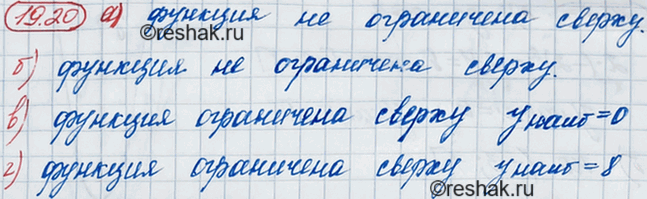 19.20 а) функция не ограничена сверху.
©reshak.ru
б) функция не ограничена сверху.
в) функция ограничена сверху yнаиб=0
г) функция ограничена сверху yнаиб=8
©reshak.ru